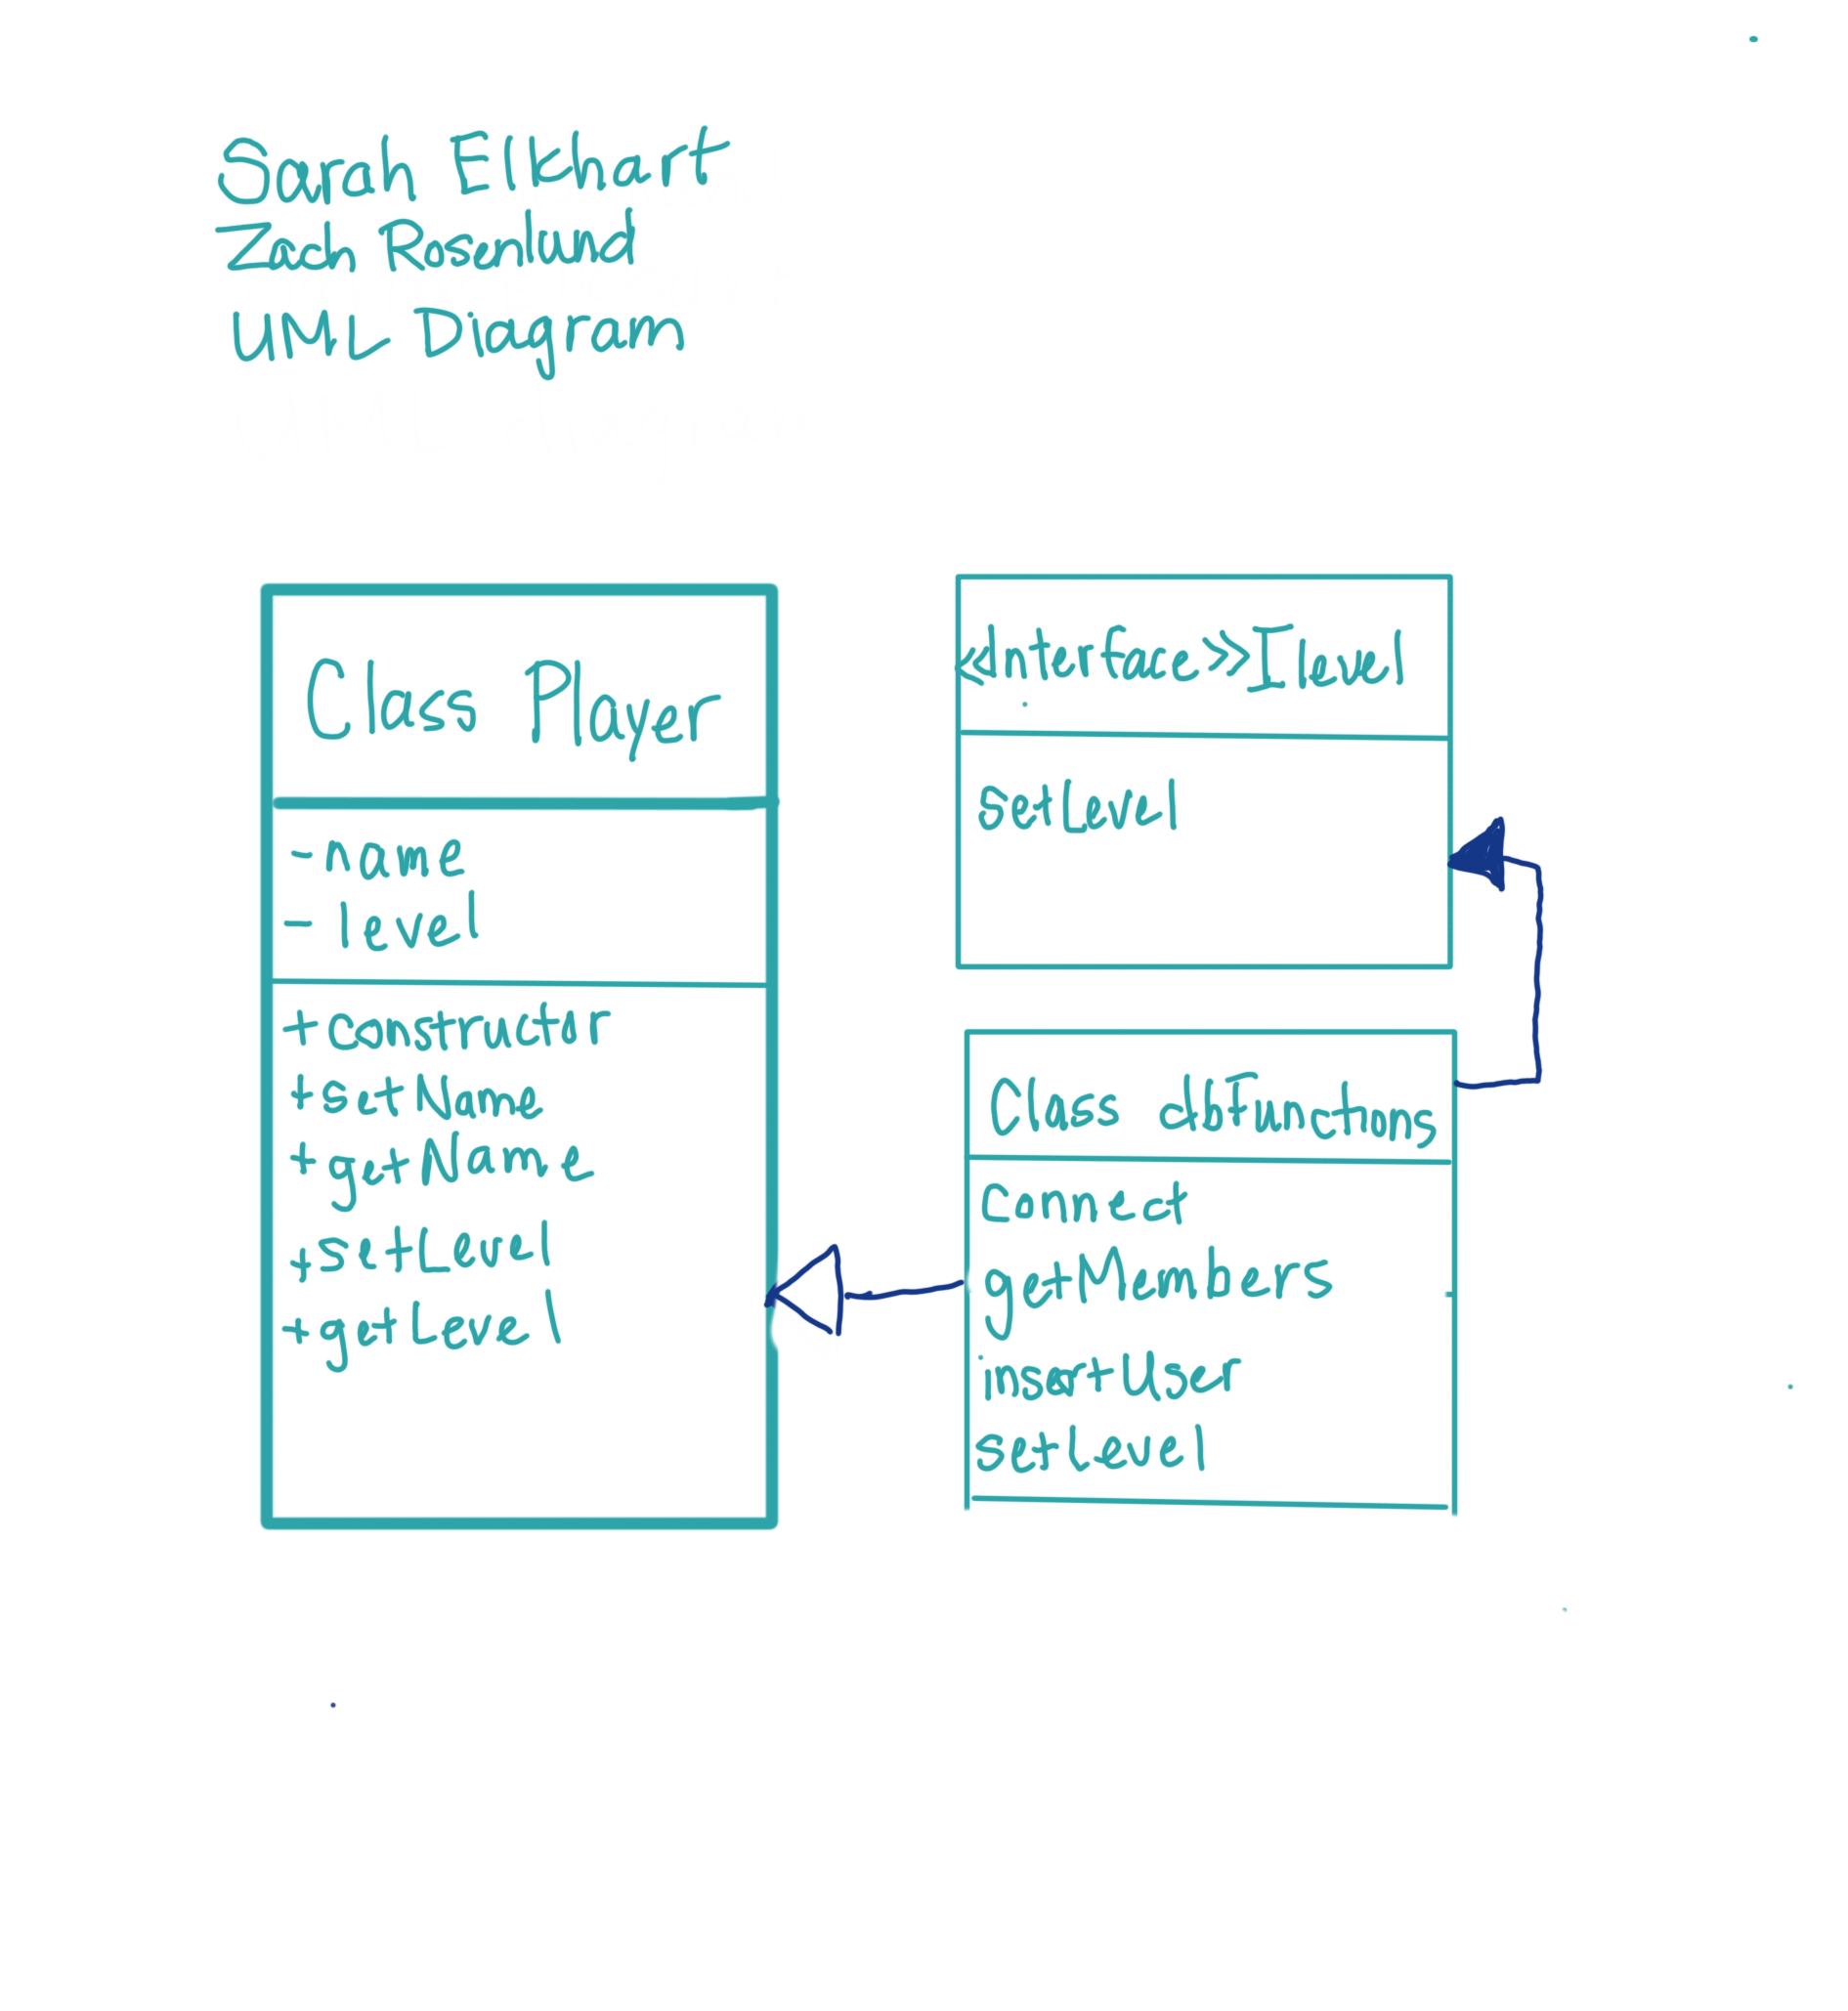 Sarah Elkhart
Zach Rosenlund
UML Diagram
Class Player
- name
- level
+ constructor
+ setName
+ getName
+ setLevel
+ getLevel
<Interface>>ILevel
setLevel
Class dbFunctons
Connect
getMembers
insertUser
setLevel